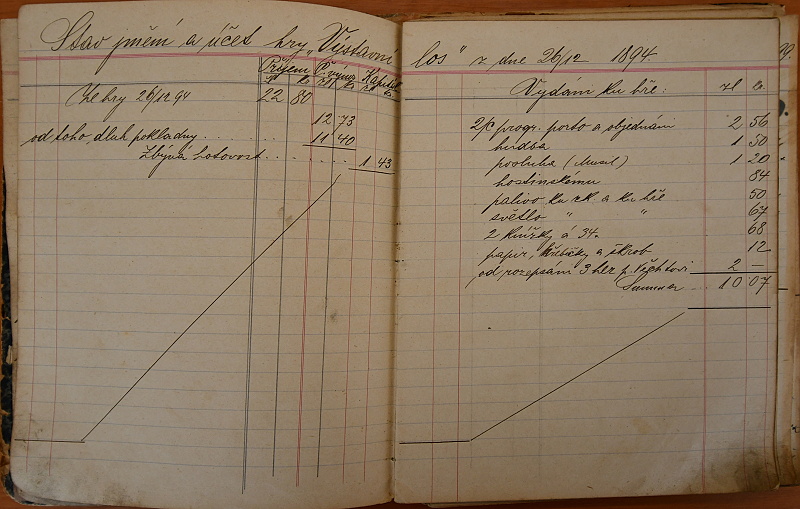 Stav jmění a účet hry „Výstavní los" z dne 26/12 1894.
Příjem Č. výnos Kapitál
zl kr zl kr zl kr
Ze hry 26/12 94 22 80
12 73
od toho dluh pokladny . . . . . . 11 40
Zbývá hotovost . . . . . . . 1 43
Vydání ku hře: zl kr.
progr. porto a objednání 2 56
hudba 1 50
posluha (Musil) 1 20
hostinskému 84
palivo ku zk. a ku hře 50
světlo " " 67
2 knížky á 34. 68
papír, hřebíčky a škrob 12
od rozepsání 3 her p. 2 —
Summa 10 07
39.